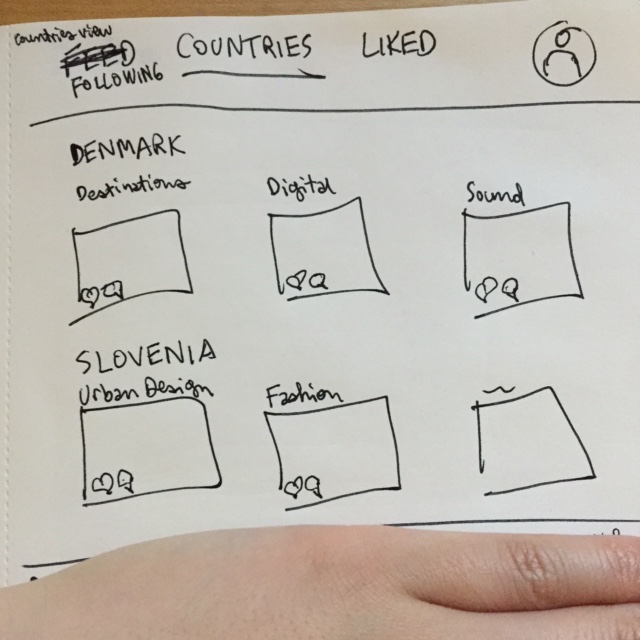 Countries view
FEED COUNTRIES LIKED
FOLLOWING
DENMARK
Destinations Digital Sound
SLOVENIA
Urban Design Fashion